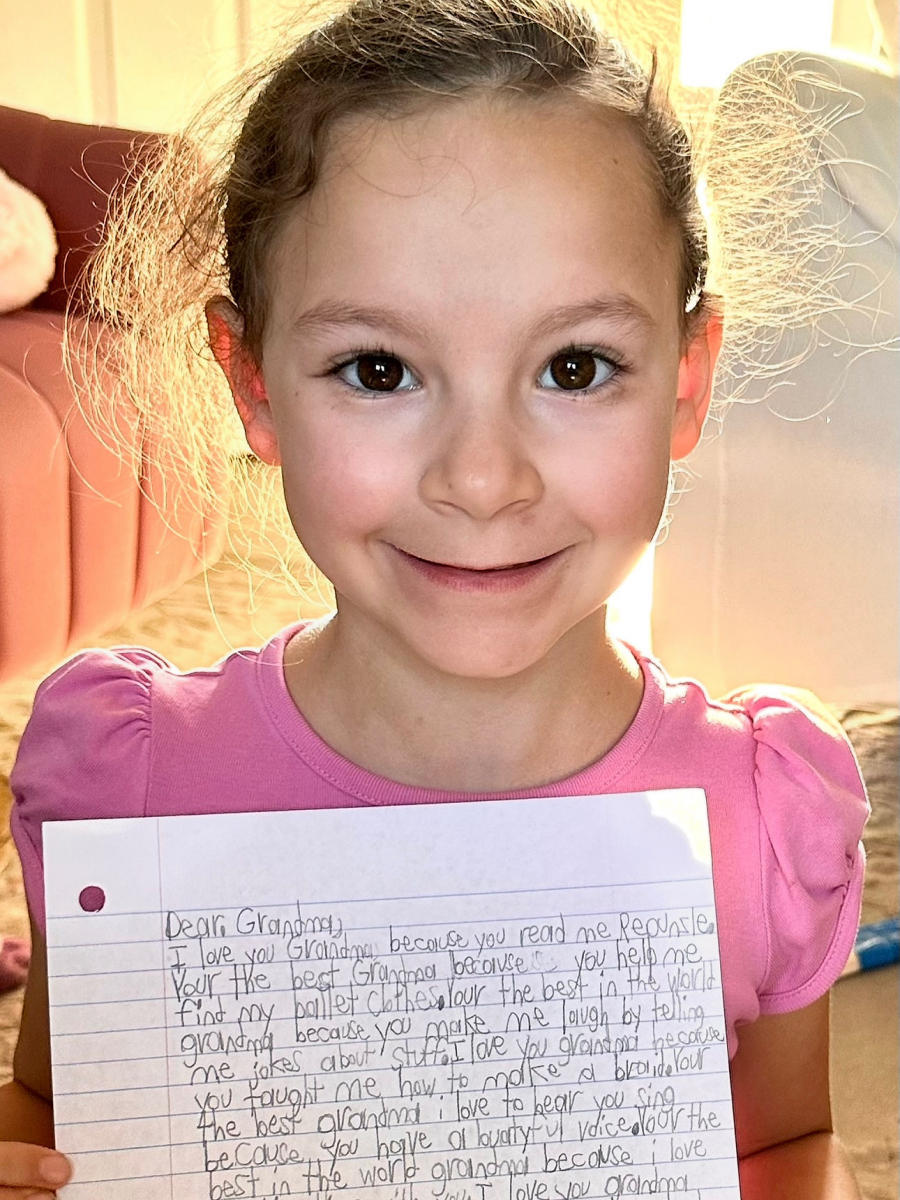 Dear, Grandma,
I love you Grandma because you read me Repunsle.
Your the best Grandma because you help me
find my ballet clothes. Your the best in the world
grandma because you make me laugh by telling
me jokes about stuff. I love you grandma because
you taught me how to make a braid. Your
the best grandma i love to hear you sing
because you have a buatyful voice. Your the
best in the world grandma because i love
you I love you grandma